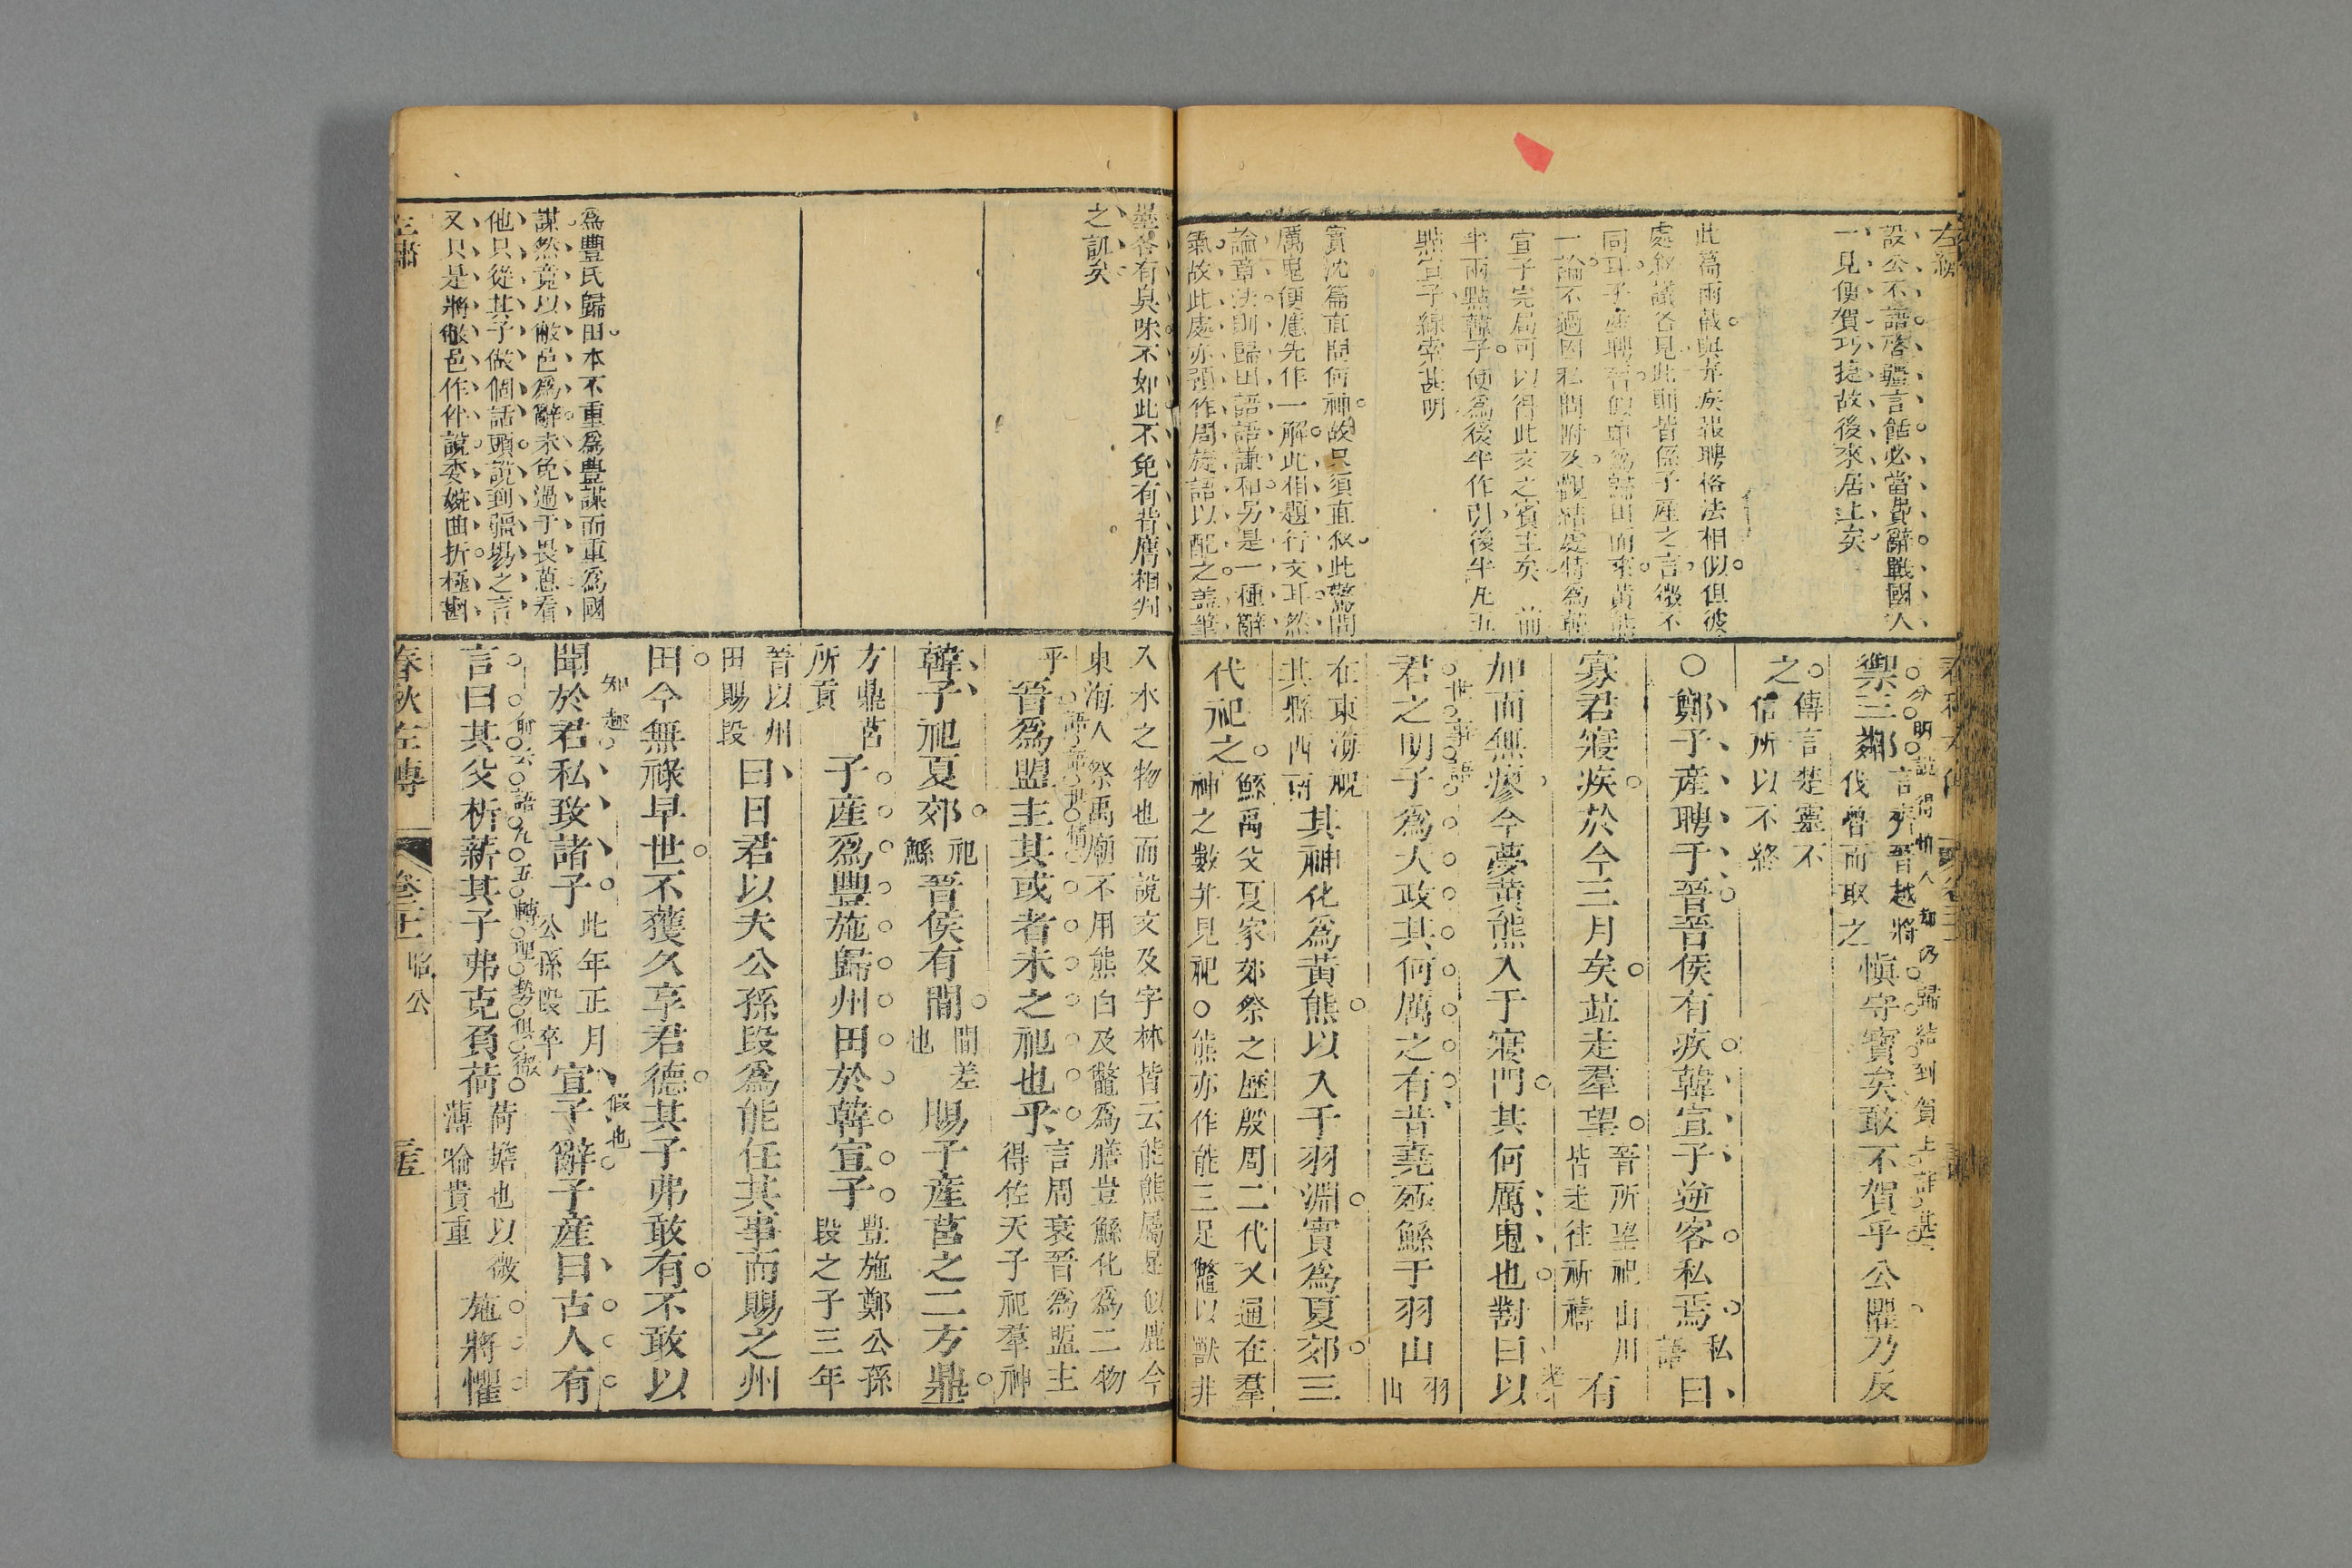 設公不語啓疆言餂必當費辭戰國人
一見便賀巧捷故後來居上矣
此篇兩截與弃疾報聘格法相似但彼
處敘議各見此則皆係子產之言微不
同耳子產聘晉似專為歸田而來黃熊
一論不過因私問附及觀結處特為韓
宣子完局可以得此文之賓主矣 前
半兩點韓子便為後半作引後半凡五
點宣子線索甚明
實沈篇直問何神故只須直敘此驚問
厲鬼便應先作一解此相題行文耳然
論章法則歸田語語謙和另是一種辭
氣故此處亦須作周旋語以配之蓋筆
禦三鄰
言齊晉越將
伐魯而取之
慎守寶矣敢不賀乎公懼乃反
之
傳言楚靈不
信所以不終
○鄭子產聘于晉晉侯有疾韓宣子逆客私焉
私
語
曰
寡君寢疾於今三月矣並走羣望
晉所望祀山川
皆走往祈禱
有
加而無瘳今夢黃熊入于寢門其何厲鬼也對曰以
君之明子為大政其何厲之有昔堯殛鯀于羽山
羽
山
在東海祝
其縣西南
其神化為黃熊以入于羽淵實為夏郊三
代祀之
鯀禹父夏家郊祭之歷殷周二代又通在羣
神之數并見祀○熊亦作能三足鼈以獸非
墨各有臭味不如此不免有背膺相判
之訓矣
為豐氏歸田本不重為豐謀而重為國
謀然竟以敝邑為辭未免過于畏葸看
他只從其子做個話頭說到疆場之言
又只是將敝邑作伴說委婉曲折極斟
入水之物也而說文及字林皆云能熊屬足似鹿今
東海人祭禹廟不用熊白及鼈為膳豈鯀化為二物
乎
晉為盟主其或者未之祀也乎
言周衰晉為盟主
得佐天子祀羣神
韓子祀夏郊
祀
鯀
晉侯有間
間差
也
賜子產莒之二方鼎
方鼎莒
所貢
子產為豐施歸州田於韓宣子
豐施鄭公孫
段之子三年
晉以州
田賜段
曰日君以夫公孫段為能任其事而賜之州
田今無祿早世不獲久享君德其子弗敢有不敢以
聞於君私致諸子
此年正月
公孫段卒
宣子辭子產曰古人有
言曰其父析薪其子弗克負荷
荷擔也以微
薄喻貴重
施將懼
春秋左傳
昭公